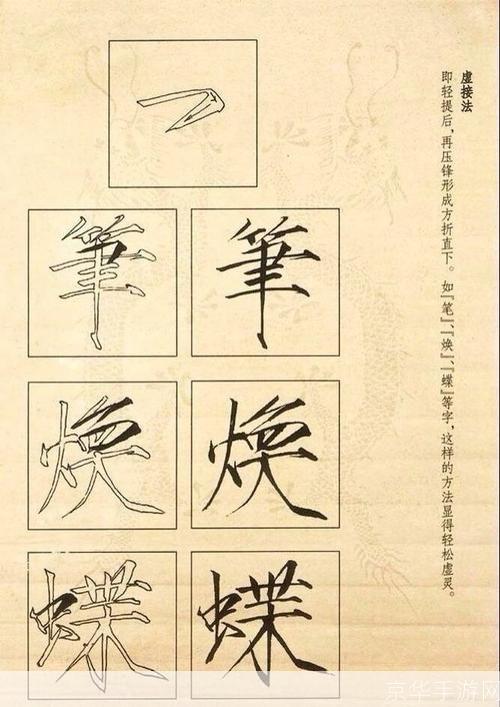 虚接法
即轻提后，再压锋形成方折直下。如『笔』、『焕』、『蝶』等字，这样的方法显得轻松虚灵。
筆 筆
焕 焕
蝶 蝶
京华手游网